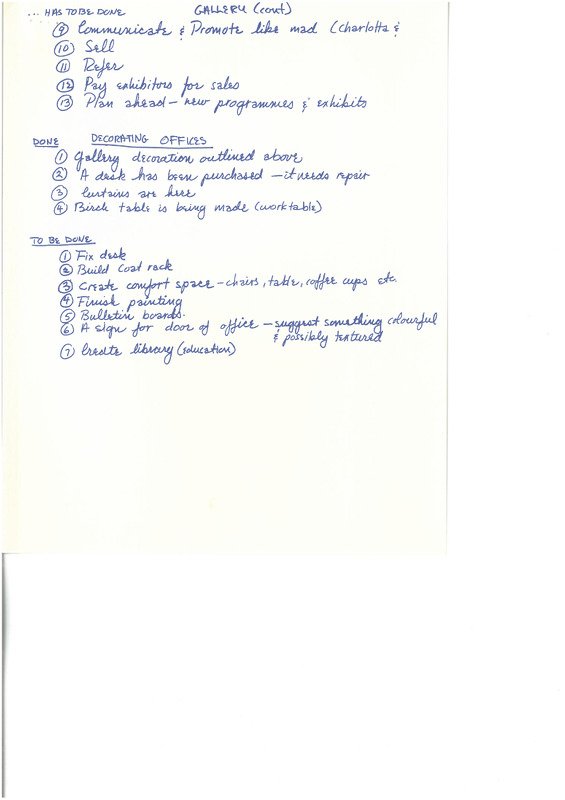 ... HAS TO BE DONE GALLERY (cont)
⑨ Communicate & Promote like mad (Charlotta &
⑩ Sell
⑪ Refer
⑫ Pay exhibitors for sales
⑬ Plan ahead – new programmes & exhibits
DONE DECORATING OFFICES
① Gallery decoration outlined above
② A desk has been purchased – it needs repair
③ Curtains are here
④ Birch table is being made (worktable)
TO BE DONE
① Fix desk
② Build coat rack
③ Create comfort space – chairs, table, coffee cups etc.
④ Finish painting
⑤ Bulletin boards.
⑥ A sign for door of office – suggest something colourful
& possibly textured
⑦ Create library (education)